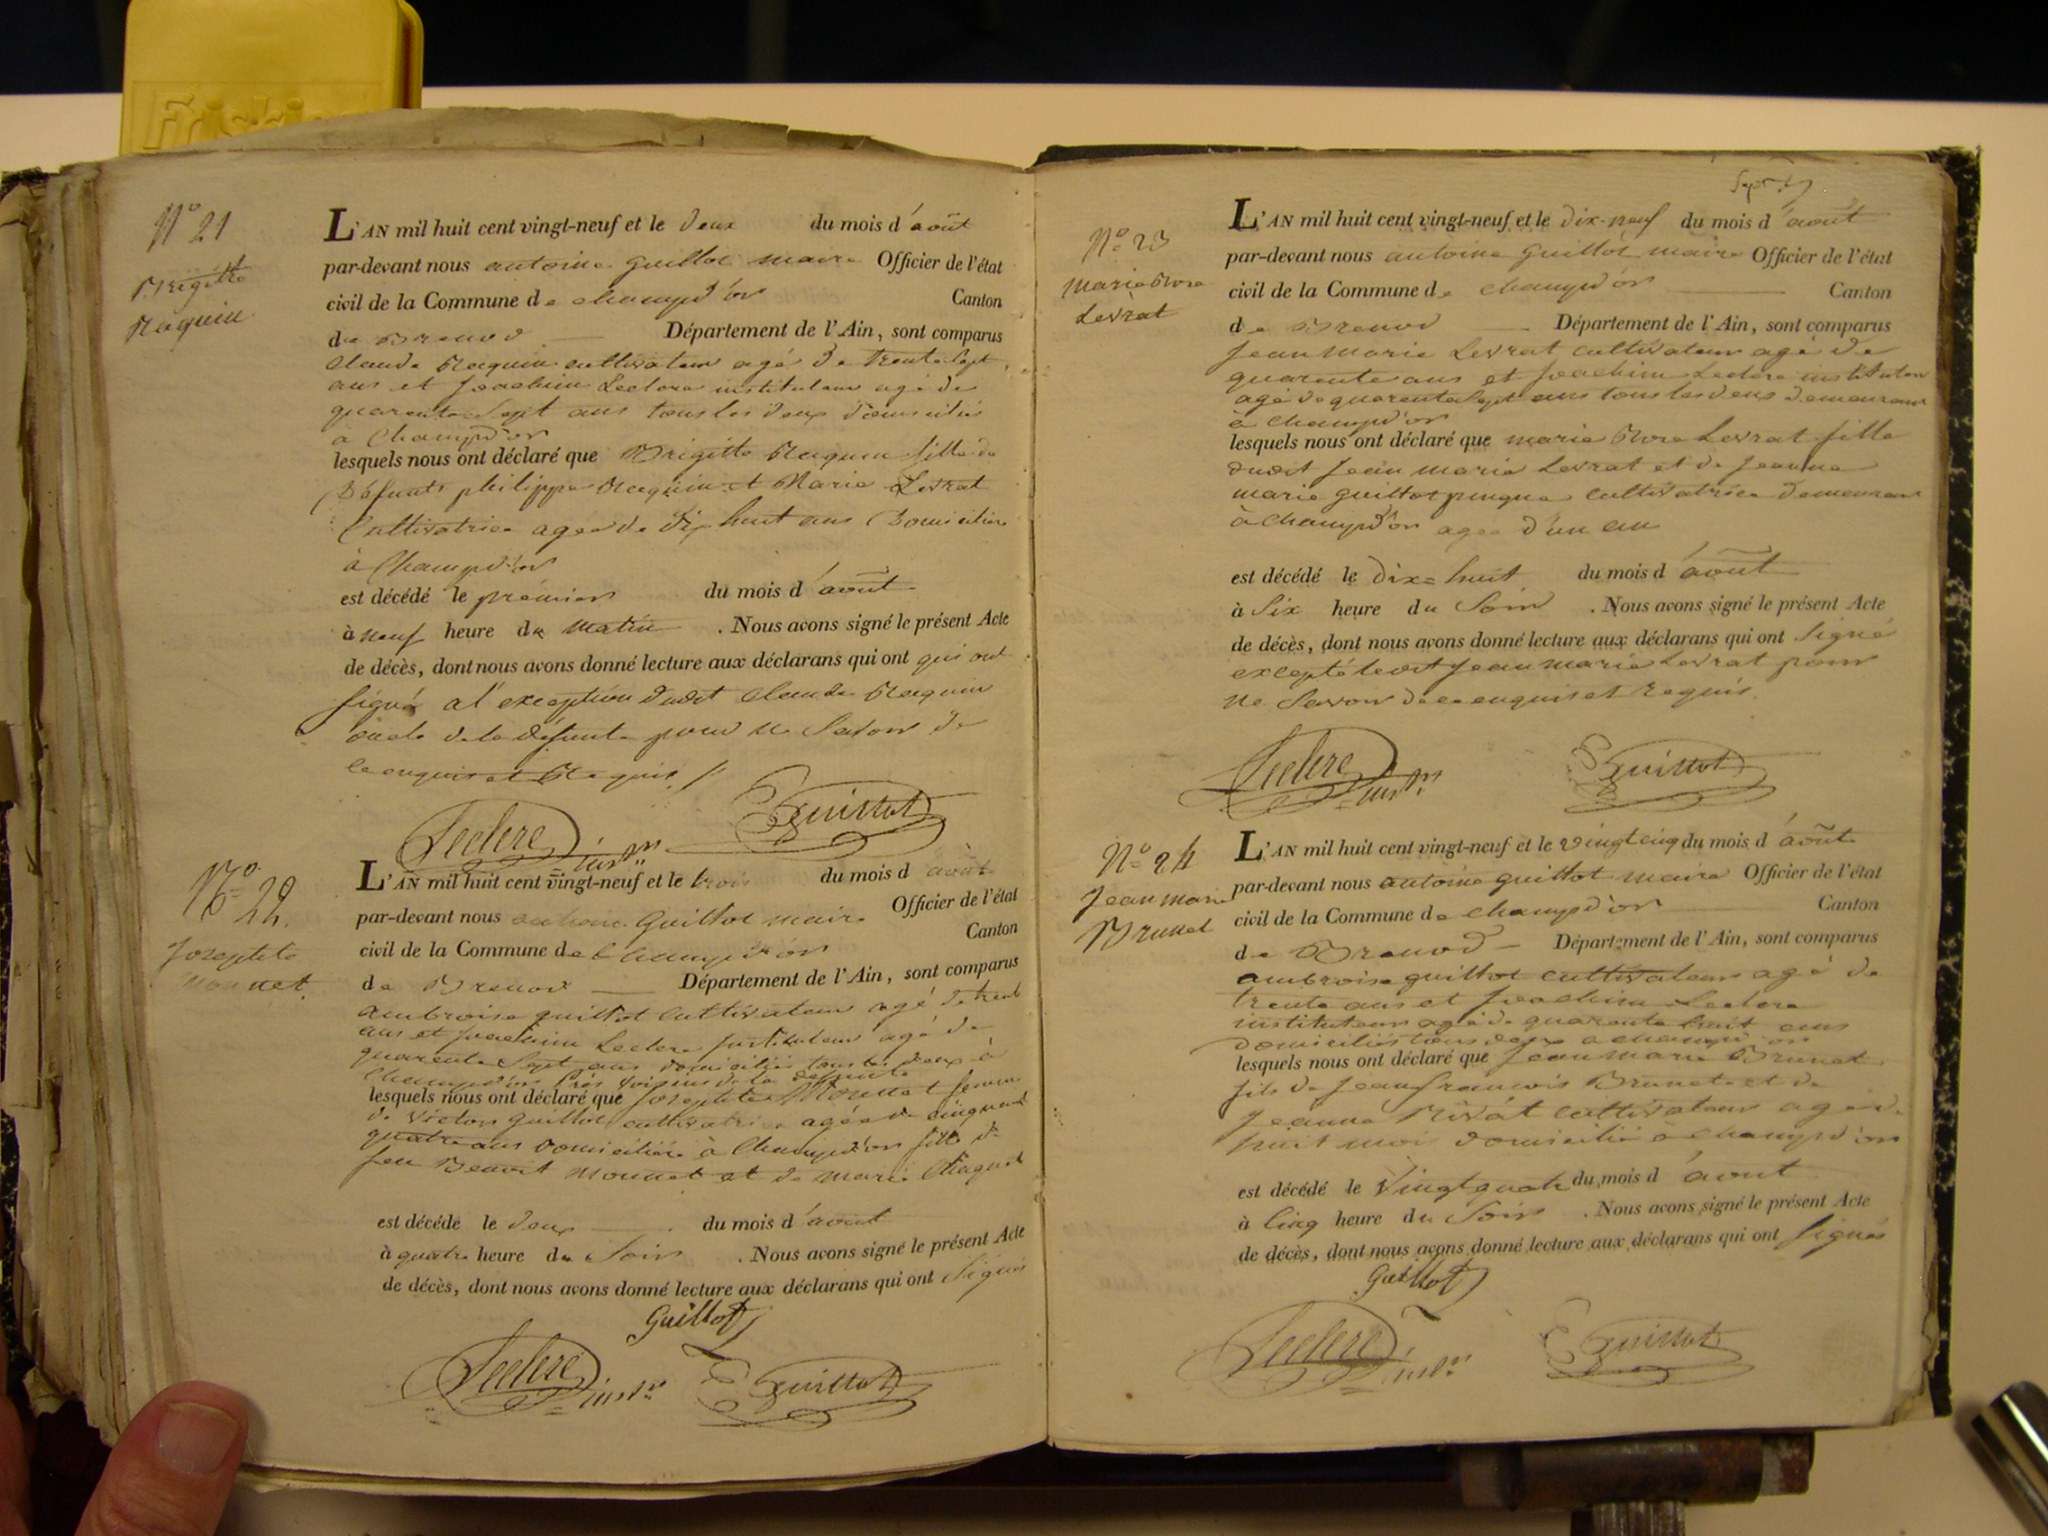 N° 21
Brigitte
Raquin
L'AN mil huit cent vingt-neuf et le deux du mois d'août
par-devant nous antoine guillot maire Officier de l'état
civil de la Commune de champd'or Canton
de Brenod Département de l'Ain, sont comparus
Claude Raquin cultivateur agé de trente sept
ans et Joachim Leclerc instituteur agé de
quarante sept ans tous les deux domiciliés
à Champd'or
lesquels nous ont déclaré que Brigitte Raquin fille de
Défunts philippe Raquin et Marie Levrat
Cultivatrice agée de dix huit ans Domiciliée
à Champd'or
est décédé le premier du mois d'août
à neuf heure du matin . Nous avons signé le présent Acte
de décès, dont nous avons donné lecture aux déclarans qui ont qui ont
signé a l'exception dudit Claude Raquin
oncle de la défunte pour ne Savoir de
ce enquis et Requis
Leclerc instr
Guillot
N° 22.
Josephte
Monnet
L'AN mil huit cent vingt-neuf et le trois du mois d'août
par-devant nous antoine Guillot maire Officier de l'état
civil de la Commune de Champd'or Canton
de Brenod Département de l'Ain, sont comparus
ambroise guillot cultivateur agé de trente
ans et Joachim Leclerc Instituteur agé de
quarante Sept ans domiciliés tous les deux à
Champd'or près voisins de la défunte
lesquels nous ont déclaré que Josephte Monnet femme
de Victor guillot cultivatrice agée de cinquante
quatre ans Domiciliée à Champd'or fille de
feu Benoit Monnet et de marie Chaquet
est décédé le deux du mois d'août
à quatre heure du Soir . Nous avons signé le présent Acte
de décès, dont nous avons donné lecture aux déclarans qui ont Signés
Guillot
Leclerc instr
Guillot
N° 23
marie Rose
Levrat
L'AN mil huit cent vingt-neuf et le dix-neuf du mois d'août
par-devant nous antoine guillot maire Officier de l'état
civil de la Commune de champd'or Canton
de Brenod Département de l'Ain, sont comparus
Jean marie Levrat cultivateur agé de
quarante ans et Joachim Leclerc instituteur
agé de quarante sept ans tous les deux demeurant
à Champd'or
lesquels nous ont déclaré que marie Rose Levrat fille
dudit Jean marie Levrat et de Jeanne
marie guillot cultivatrice demeurant
à Champd'or agée d'un an
est décédé le dix-huit du mois d'août
à Six heure du Soir . Nous avons signé le présent Acte
de décès, dont nous avons donné lecture aux déclarans qui ont Signé
excepté ledit Jean marie Levrat pour
ne Savoir de ce enquis et Requis
Leclerc instr
Guillot
N° 24
Jean marie
Brunet
L'AN mil huit cent vingt-neuf et le vingt cinq du mois d'août
par-devant nous antoine guillot maire Officier de l'état
civil de la Commune de Champd'or Canton
de Brenod Département de l'Ain, sont comparus
ambroise guillot cultivateur agé de
trente ans et Joachim Leclerc
instituteur agé de quarante huit ans
domiciliés tous deux a champd'or
lesquels nous ont déclaré que Jean marie Brunet
fils de Jean francois Brunet et de
Jeanne Rivat cultivateur agé de
huit mois domicilié à champd'or
est décédé le Vingt quatre du mois d'aout
à Cinq heure du Soir . Nous avons signé le présent Acte
de décès, dont nous avons donné lecture aux déclarans qui ont Signés
Guillot
Leclerc instr
Guillot